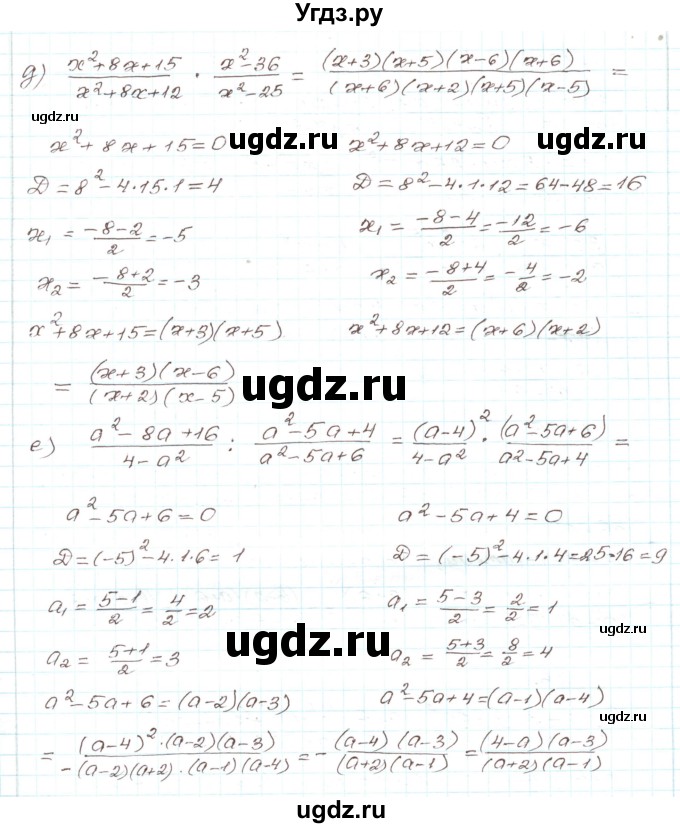 Угдз.ру
д) (x²+8x+15)/(x²+8x+12) · (x²-36)/(x²-25) = ((x+3)(x+5)(x-6)(x+6))/((x+6)(x+2)(x+5)(x-5)) =
ugdz.ru
x²+8x+15=0 ugdz.ru x²+8x+12=0
Д=8²-4·15·1=4 Д=8²-4·1·12=64-48=16
x₁=(-8-2)/2=-5 x₁=(-8-4)/2=-12/2=-6
ugdz.ru
x₂=(-8+2)/2=-3 x₂=(-8+4)/2=-4/2=-2
x²+8x+15=(x+3)(x+5) x²+8x+12=(x+6)(x+2)
=((x+3)(x-6))/((x+2)(x-5)) ugdz.ru
е) (a²-8a+16)/(4-a²) : (a²-5a+4)/(a²-5a+6) = (a-4)²/(4-a²) · (a²-5a+6)/(a²-5a+4) =
ugdz.ru
a²-5a+6=0 a²-5a+4=0
Д=(-5)²-4·1·6=1 Д=(-5)²-4·1·4=25-16=9
a₁=(5-1)/2=4/2=2 a₁=(5-3)/2=2/2=1
ugdz.ru
ugdz.ru
a₂=(5+1)/2=3 a₂=(5+3)/2=8/2=4
a²-5a+6=(a-2)(a-3) a²-5a+4=(a-1)(a-4)
ugdz.ru
=((a-4)²·(a-2)(a-3))/(-(a-2)(a+2)·(a-1)(a-4))=-((a-4)(a-3))/((a+2)(a-1))=((4-a)(a-3))/((a+2)(a-1))
ugdz.ru